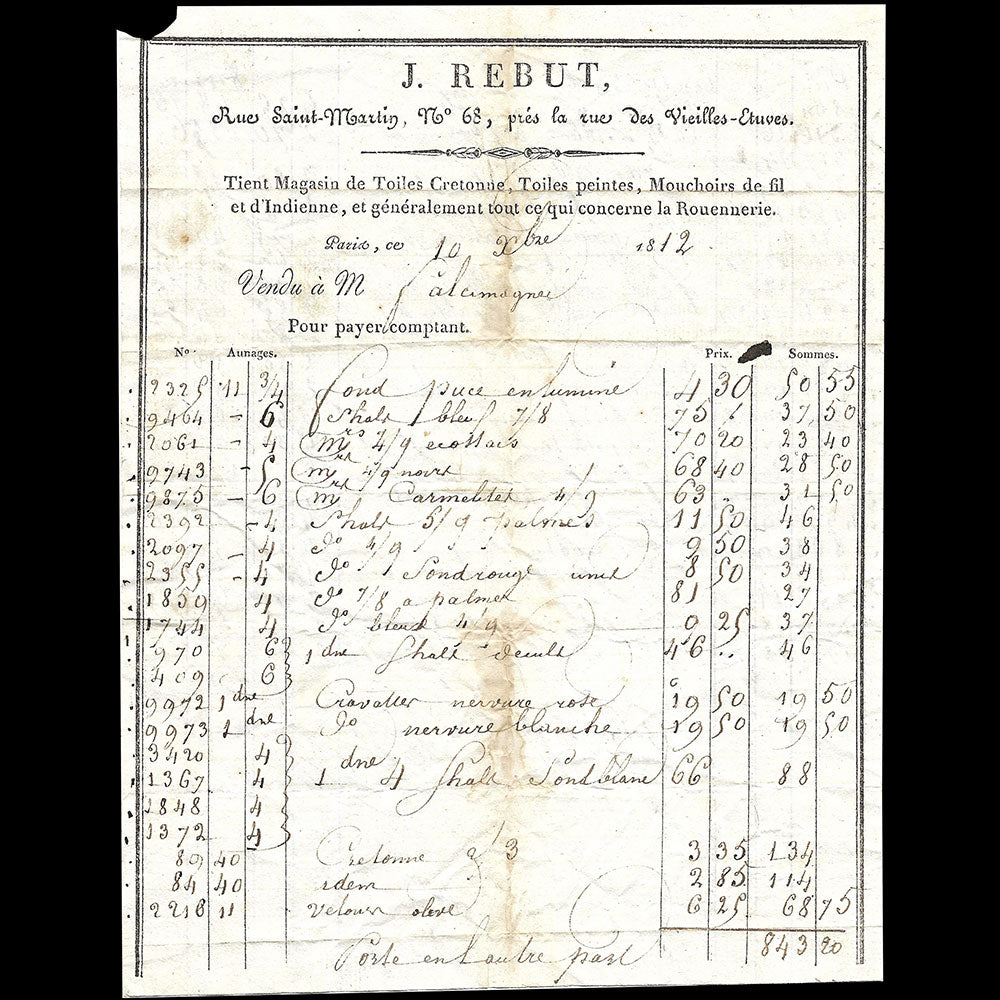 J. REBUT,
Rue Saint-Martin, N° 68, prés la rue des Vieilles-Etuves.
Tient Magasin de Toiles Cretonne, Toiles peintes, Mouchoirs de fil
et d'Indienne, et généralement tout ce qui concerne la Rouennerie.
Paris, ce 10 Xbre 1812
Vendu à M
Pour payer comptant.
N° Aunages. Prix. Sommes.
2325 11 3/4 fond puce enluminé 4 30 50 55
9464 - 6 Shals bleus 7/8 75 37 50
2061 - 4 mrs 4/9 ecossais 70 20 23 40
9743 - 5 mrs 4/9 noirs 68 40 28 50
9875 - 6 mrs Carmelites 4/9 63 31 50
2392 - 4 Shals 5/9 palmes 11 50 46
2097 - 4 do 4/9 9 50 38
2355 - 4 do fond rouge unis 8 50 34
1859 4 do 7/8 a palmes 81 27
1744 4 do bleus 4/9 9 25 37
970 6 1 dne Shals 46 .. 46
409 6
9972 1 dne Cravattes nervure rose 19 50 19 50
9973 1 dne do nervure blanche 19 50 19 50
3420 4
1367 4 1 dne 4 Shals fond blanc 66 88
1848 4
1372 4
89 40 Cretonne 2/3 3 35 134
84 40 idem 2 85 114
2216 11 velours olive 6 25 68 75
843 20
Porté en l'autre part